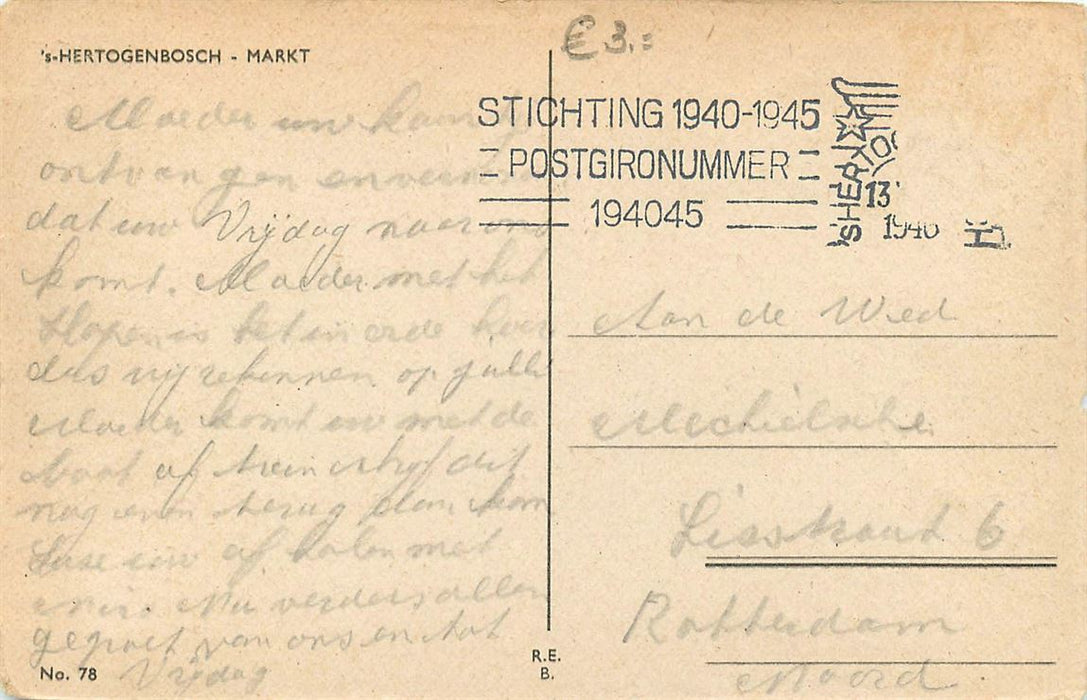 's-HERTOGENBOSCH - MARKT
€ 3.=
STICHTING 1940-1945
POSTGIRONUMMER
194045
'sHERTOG
13
1946
Moeder uw kaart
ontvangen en
dat uw Vrijdag naar ons
komt. Moeder met het
slapen is het in orde hoor
dus wij rekennen op jullie
Moeder komt uw met de
boot of trein schrijf dit
nog even terug dan kom
uw af halen met
Nu verders allen
gegroet van ons en tot
Vrijdag
Aan de Wed
Mechielsche
6
Rotterdam
Noord
No. 78
R.E.
B.